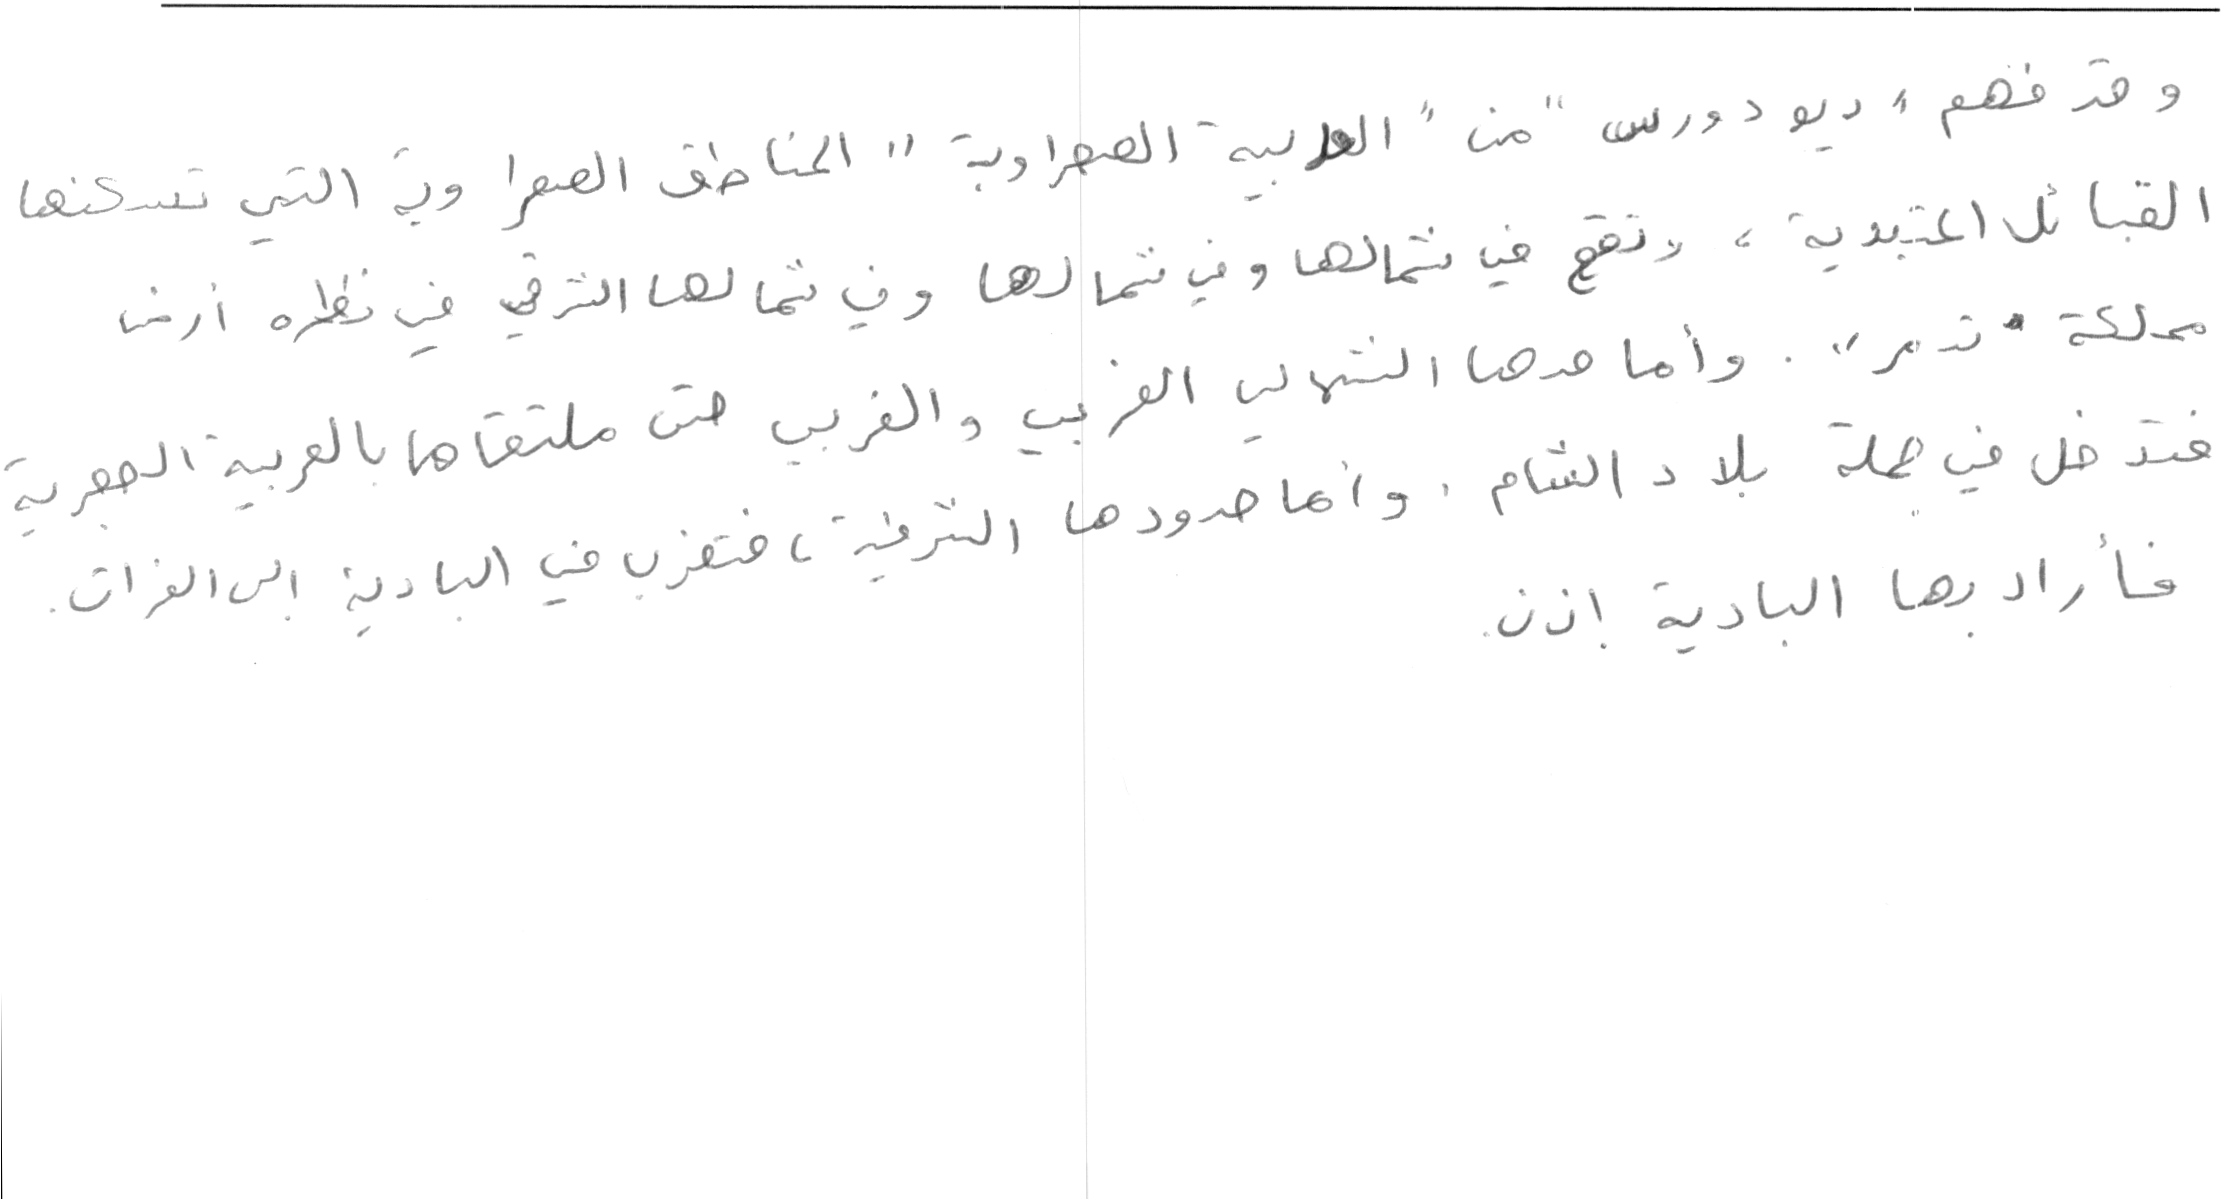 وقد فهم "ديودورس" من "العربية الصحراوية" المناطق الصحراوية التي تسكنها
القبائل المتبدية، وتقع في شمالها وفي شمالها وفي شمالها الشرقي في نظره أرض
مملكة "تدمر". وأما حدها الشمالي الغربي والغربي حتى ملتقاها بالعربية الحجرية
فتدخل في جملة بلاد الشام. وأما حدودها الشرقية، فتغرب في البادية إلى الفرات.
فأراد بها البادية إذن.